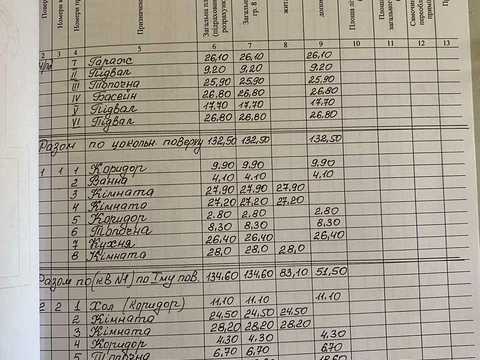 2 3 4 5 6 7 8 9 10 11 12 13
I Гараж 26,10 26,10 26,10
II Підвал 9,20 9,20 9,20
III Топочна 25,90 25,90 25,90
IV Басейн 26,80 26,80 26,80
V Підвал 17,70 17,70 17,70
VI Підвал 26,80 26,80 26,80
Разом по цокольн. поверху 132,50 132,50 132,50
1 1 1 Коридор 9.90 9.90 9.90
2 Ванна 4.10 4.10 4.10
3 Кімната 27,90 27,90 27,90
4 Кімната 27,20 27,20 27,20
5 Коридор 2.80 2.80 2.80
6 Топочна 8,30 8,30 8,30
7 Кухня 26,40 26,40 26,40
8 Кімната 28,0 28,0 28,0
Разом по (кв №1) по 1му пов. 134.60 134,60 83,10 51,50
2 2 1 Хол (коридор) 11.10 11.10 11.10
2 Кімната 24,50 24,50 24,50
3 Кімната 28,20 28,20 28,20
4 Коридор 4,30 4.30 4,30
5 Топочна 6,70 6,70 6,70